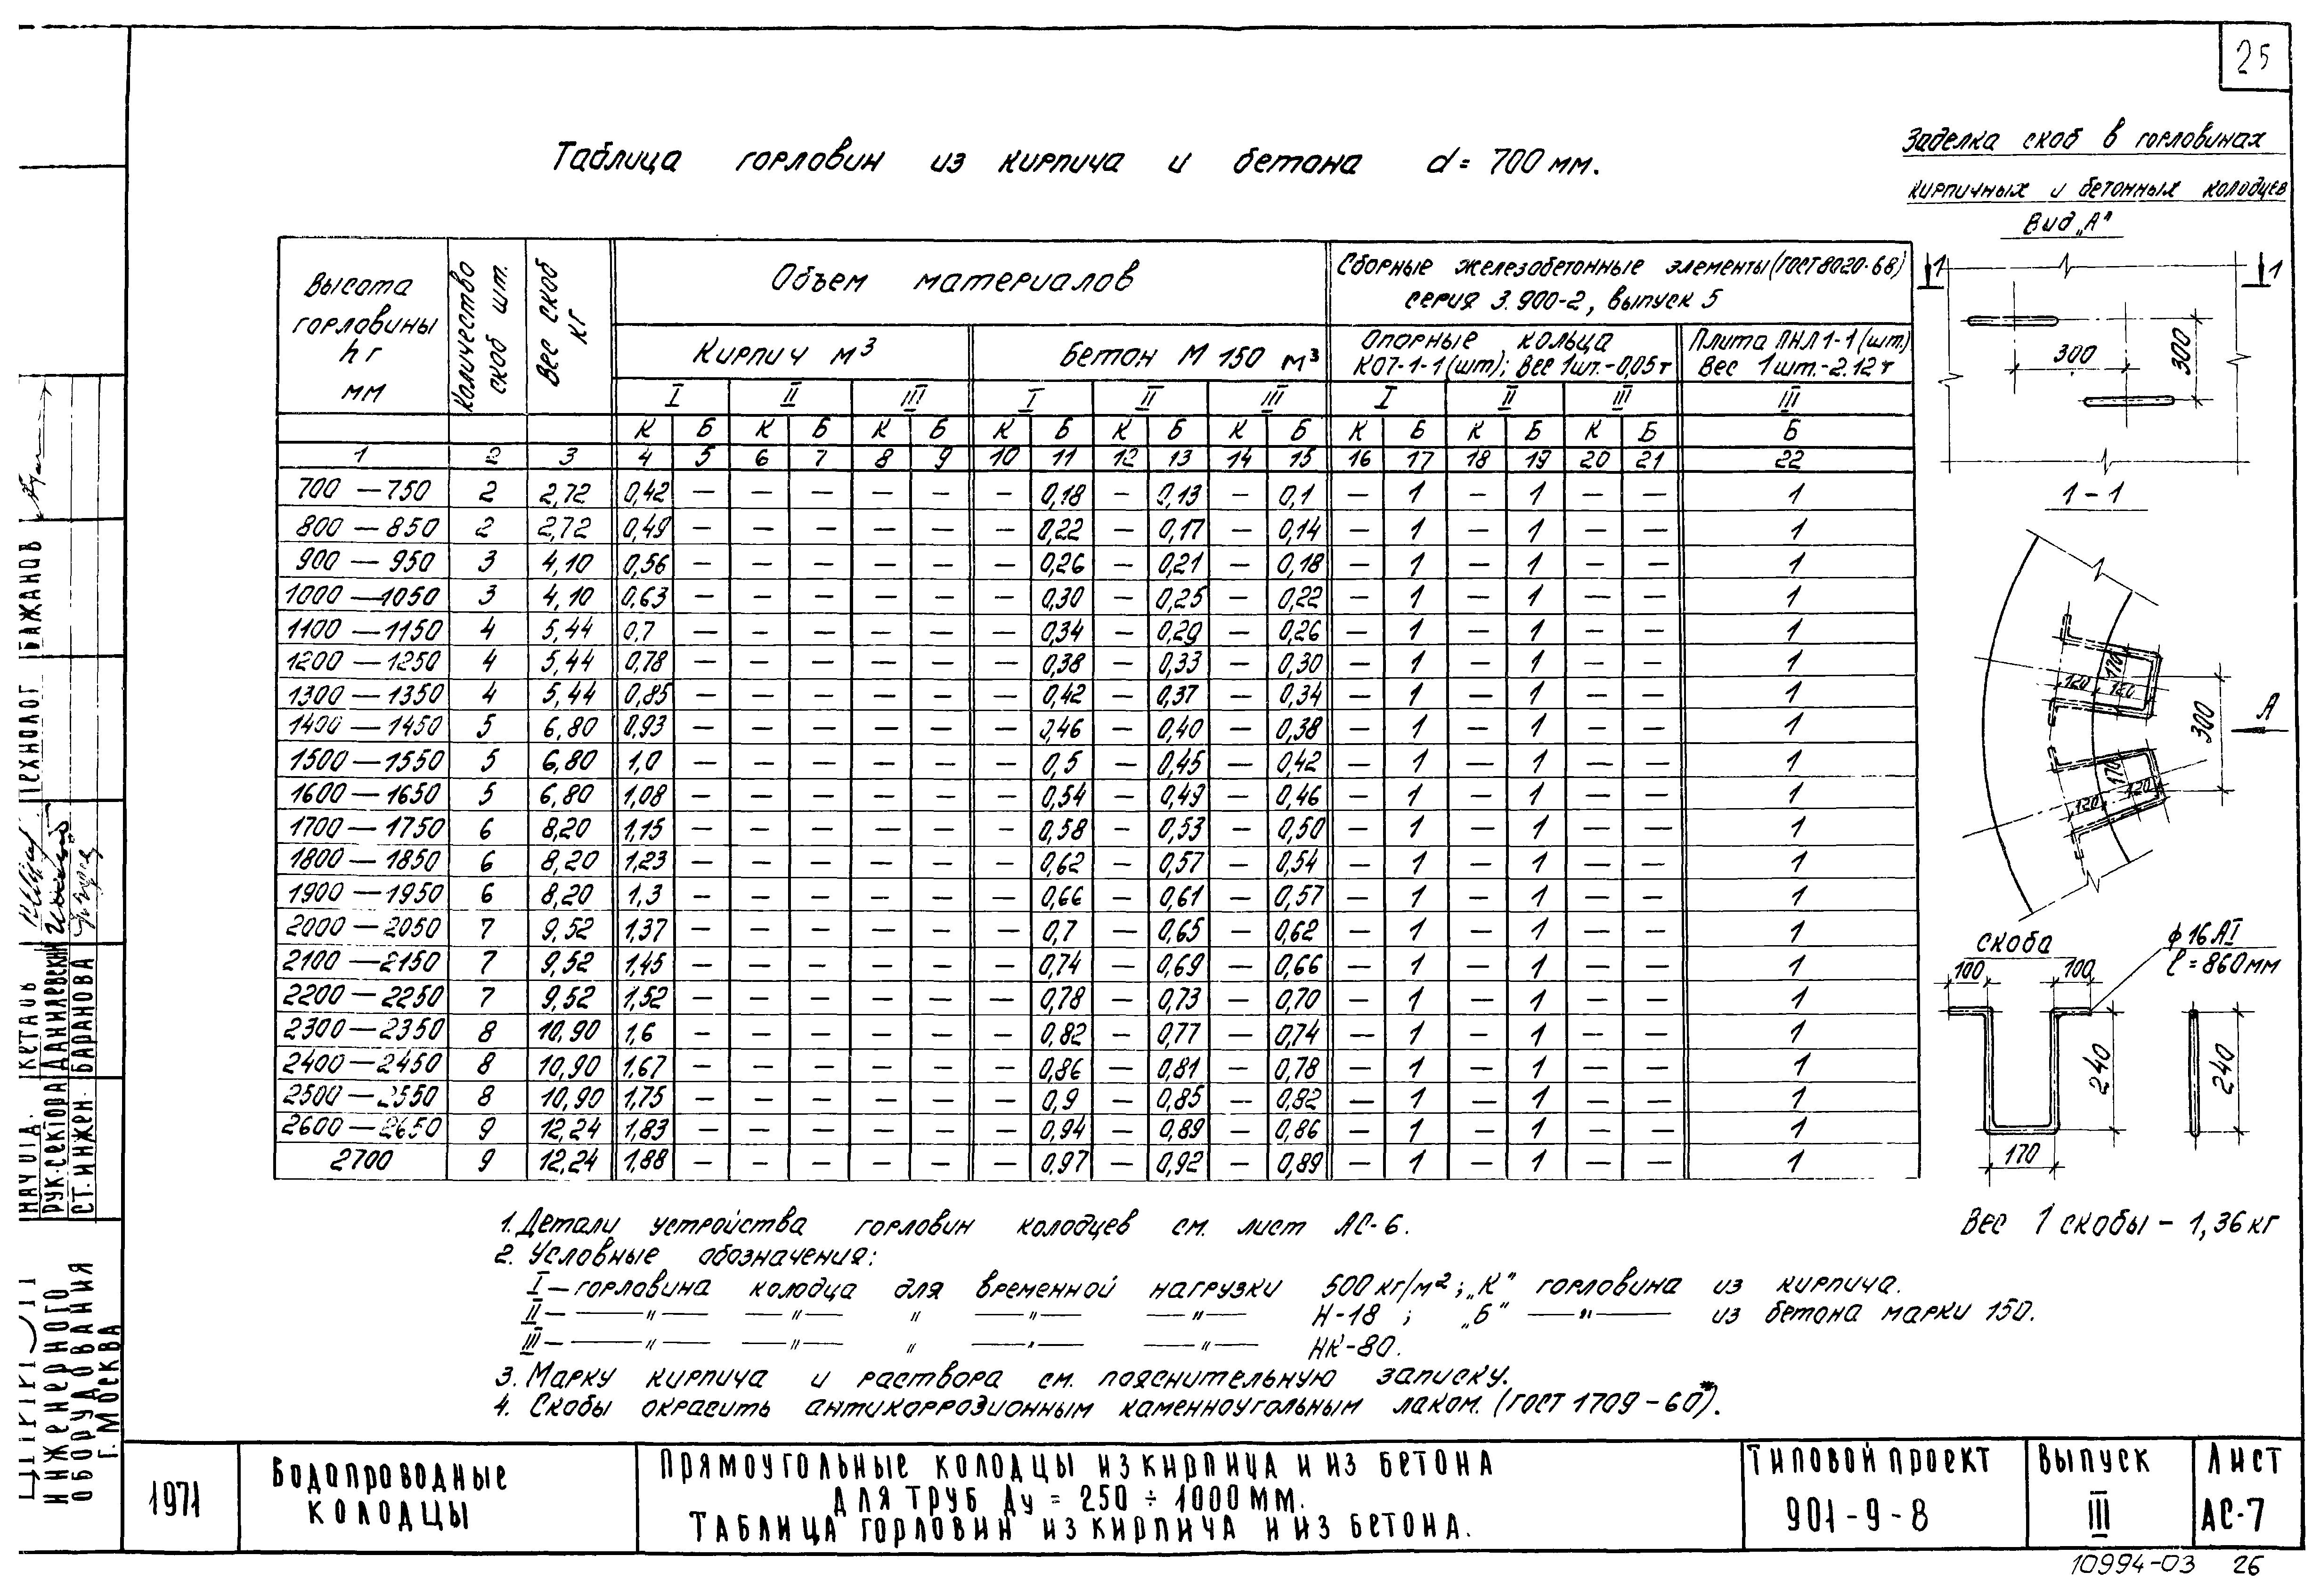 25
Таблица горловин из кирпича и бетона d = 700 мм.
Заделка скоб в горловинах
кирпичных и бетонных колодцев
Вид „А"
Высота горловины hг мм
Количество скоб шт.
Вес скоб кг
Объем материалов
Сборные железобетонные элементы (ГОСТ 8020-68)
серия 3.900-2, выпуск 5
Кирпич м³
Бетон М 150 м³
Опорные кольца
КО7-1-1 (шт); Вес 1шт.-0,05т
Плита ПНЛ1-1 (шт.)
Вес 1шт.-2.12т
I II III I II III I II III III
К Б К Б К Б К Б К Б К Б К Б К Б К Б Б
1 2 3 4 5 6 7 8 9 10 11 12 13 14 15 16 17 18 19 20 21 22
700 — 750 2 2,72 0,42 — — — — — — 0,18 — 0,13 — 0,1 — 1 — 1 — — 1
800 — 850 2 2,72 0,49 — — — — — — 0,22 — 0,17 — 0,14 — 1 — 1 — — 1
900 — 950 3 4,10 0,56 — — — — — — 0,26 — 0,21 — 0,18 — 1 — 1 — — 1
1000 — 1050 3 4,10 0,63 — — — — — — 0,30 — 0,25 — 0,22 — 1 — 1 — — 1
1100 — 1150 4 5,44 0,7 — — — — — — 0,34 — 0,29 — 0,26 — 1 — 1 — — 1
1200 — 1250 4 5,44 0,78 — — — — — — 0,38 — 0,33 — 0,30 — 1 — 1 — — 1
1300 — 1350 4 5,44 0,85 — — — — — — 0,42 — 0,37 — 0,34 — 1 — 1 — — 1
1400 — 1450 5 6,80 0,93 — — — — — — 0,46 — 0,40 — 0,38 — 1 — 1 — — 1
1500 — 1550 5 6,80 1,0 — — — — — — 0,5 — 0,45 — 0,42 — 1 — 1 — — 1
1600 — 1650 5 6,80 1,08 — — — — — — 0,54 — 0,49 — 0,46 — 1 — 1 — — 1
1700 — 1750 6 8,20 1,15 — — — — — — 0,58 — 0,53 — 0,50 — 1 — 1 — — 1
1800 — 1850 6 8,20 1,23 — — — — — — 0,62 — 0,57 — 0,54 — 1 — 1 — — 1
1900 — 1950 6 8,20 1,3 — — — — — — 0,66 — 0,61 — 0,57 — 1 — 1 — — 1
2000 — 2050 7 9,52 1,37 — — — — — — 0,7 — 0,65 — 0,62 — 1 — 1 — — 1
2100 — 2150 7 9,52 1,45 — — — — — — 0,74 — 0,69 — 0,66 — 1 — 1 — — 1
2200 — 2250 7 9,52 1,52 — — — — — — 0,78 — 0,73 — 0,70 — 1 — 1 — — 1
2300 — 2350 8 10,90 1,6 — — — — — — 0,82 — 0,77 — 0,74 — 1 — 1 — — 1
2400 — 2450 8 10,90 1,67 — — — — — — 0,86 — 0,81 — 0,78 — 1 — 1 — — 1
2500 — 2550 8 10,90 1,75 — — — — — — 0,9 — 0,85 — 0,82 — 1 — 1 — — 1
2600 — 2650 9 12,24 1,83 — — — — — — 0,94 — 0,89 — 0,86 — 1 — 1 — — 1
2700 9 12,24 1,88 — — — — — — 0,97 — 0,92 — 0,89 — 1 — 1 — — 1
1 1
300 300
1 - 1
170
120 120
300
А
170
120 120
скоба
ϕ 16 АI
ℓ = 860 мм
100 100
240 240
170
Вес 1 скобы - 1,36 кг
1. Детали устройства горловин колодцев см. лист АС-6.
2. Условные обозначения:
I — горловина колодца для временной нагрузки 500 кг/м²; „К" горловина из кирпича.
II — —"— —"— " —"— —"— Н-18 ; „Б" —"— из бетона марки 150.
III — —"— —"— " —"— —"— НК-80.
3. Марку кирпича и раствора см. пояснительную записку.
4. Скобы окрасить антикоррозионным каменноугольным лаком. (ГОСТ 1709-60*).
1971
Водопроводные
колодцы
Прямоугольные колодцы из кирпича и из бетона
для труб Ду = 250 ÷ 1000 мм.
Таблица горловин из кирпича и из бетона.
Типовой проект
901-9-8
Выпуск
III
Лист
АС-7
10994-03 26
Технолог Бажанов
Рук. сектора Данилевский
Ст. инжен. Баранова
инженерного
оборудования
г. Москва